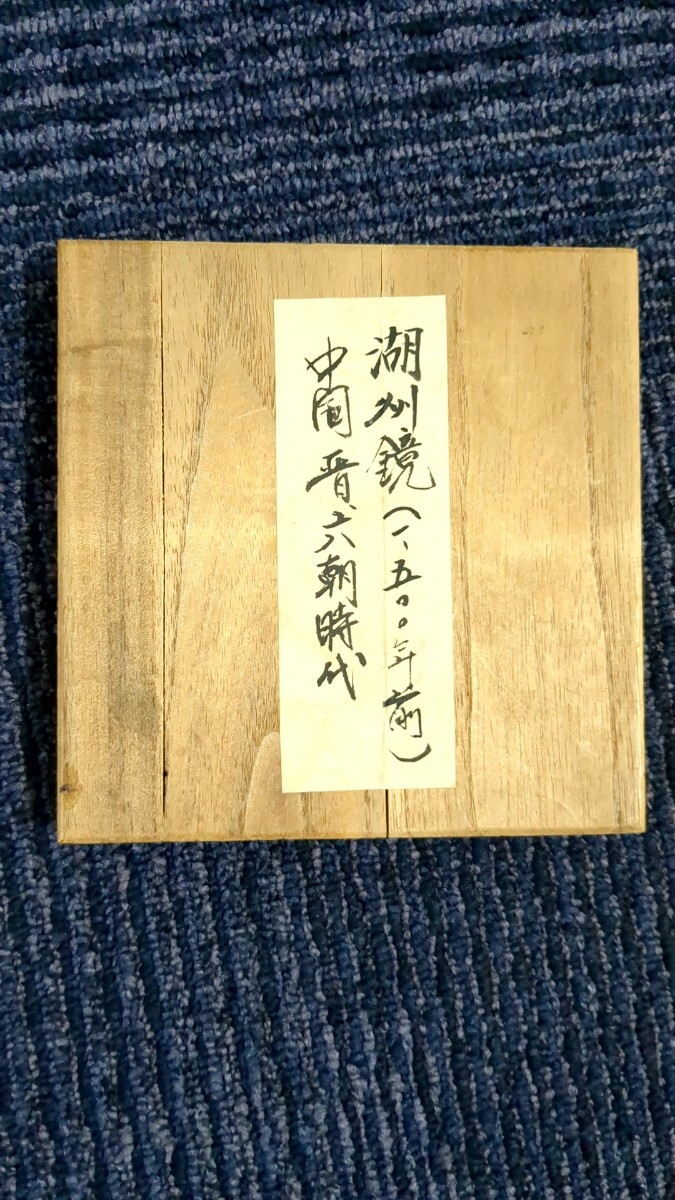 湖州鏡(一、五〇〇年前)
中国晋、六朝時代